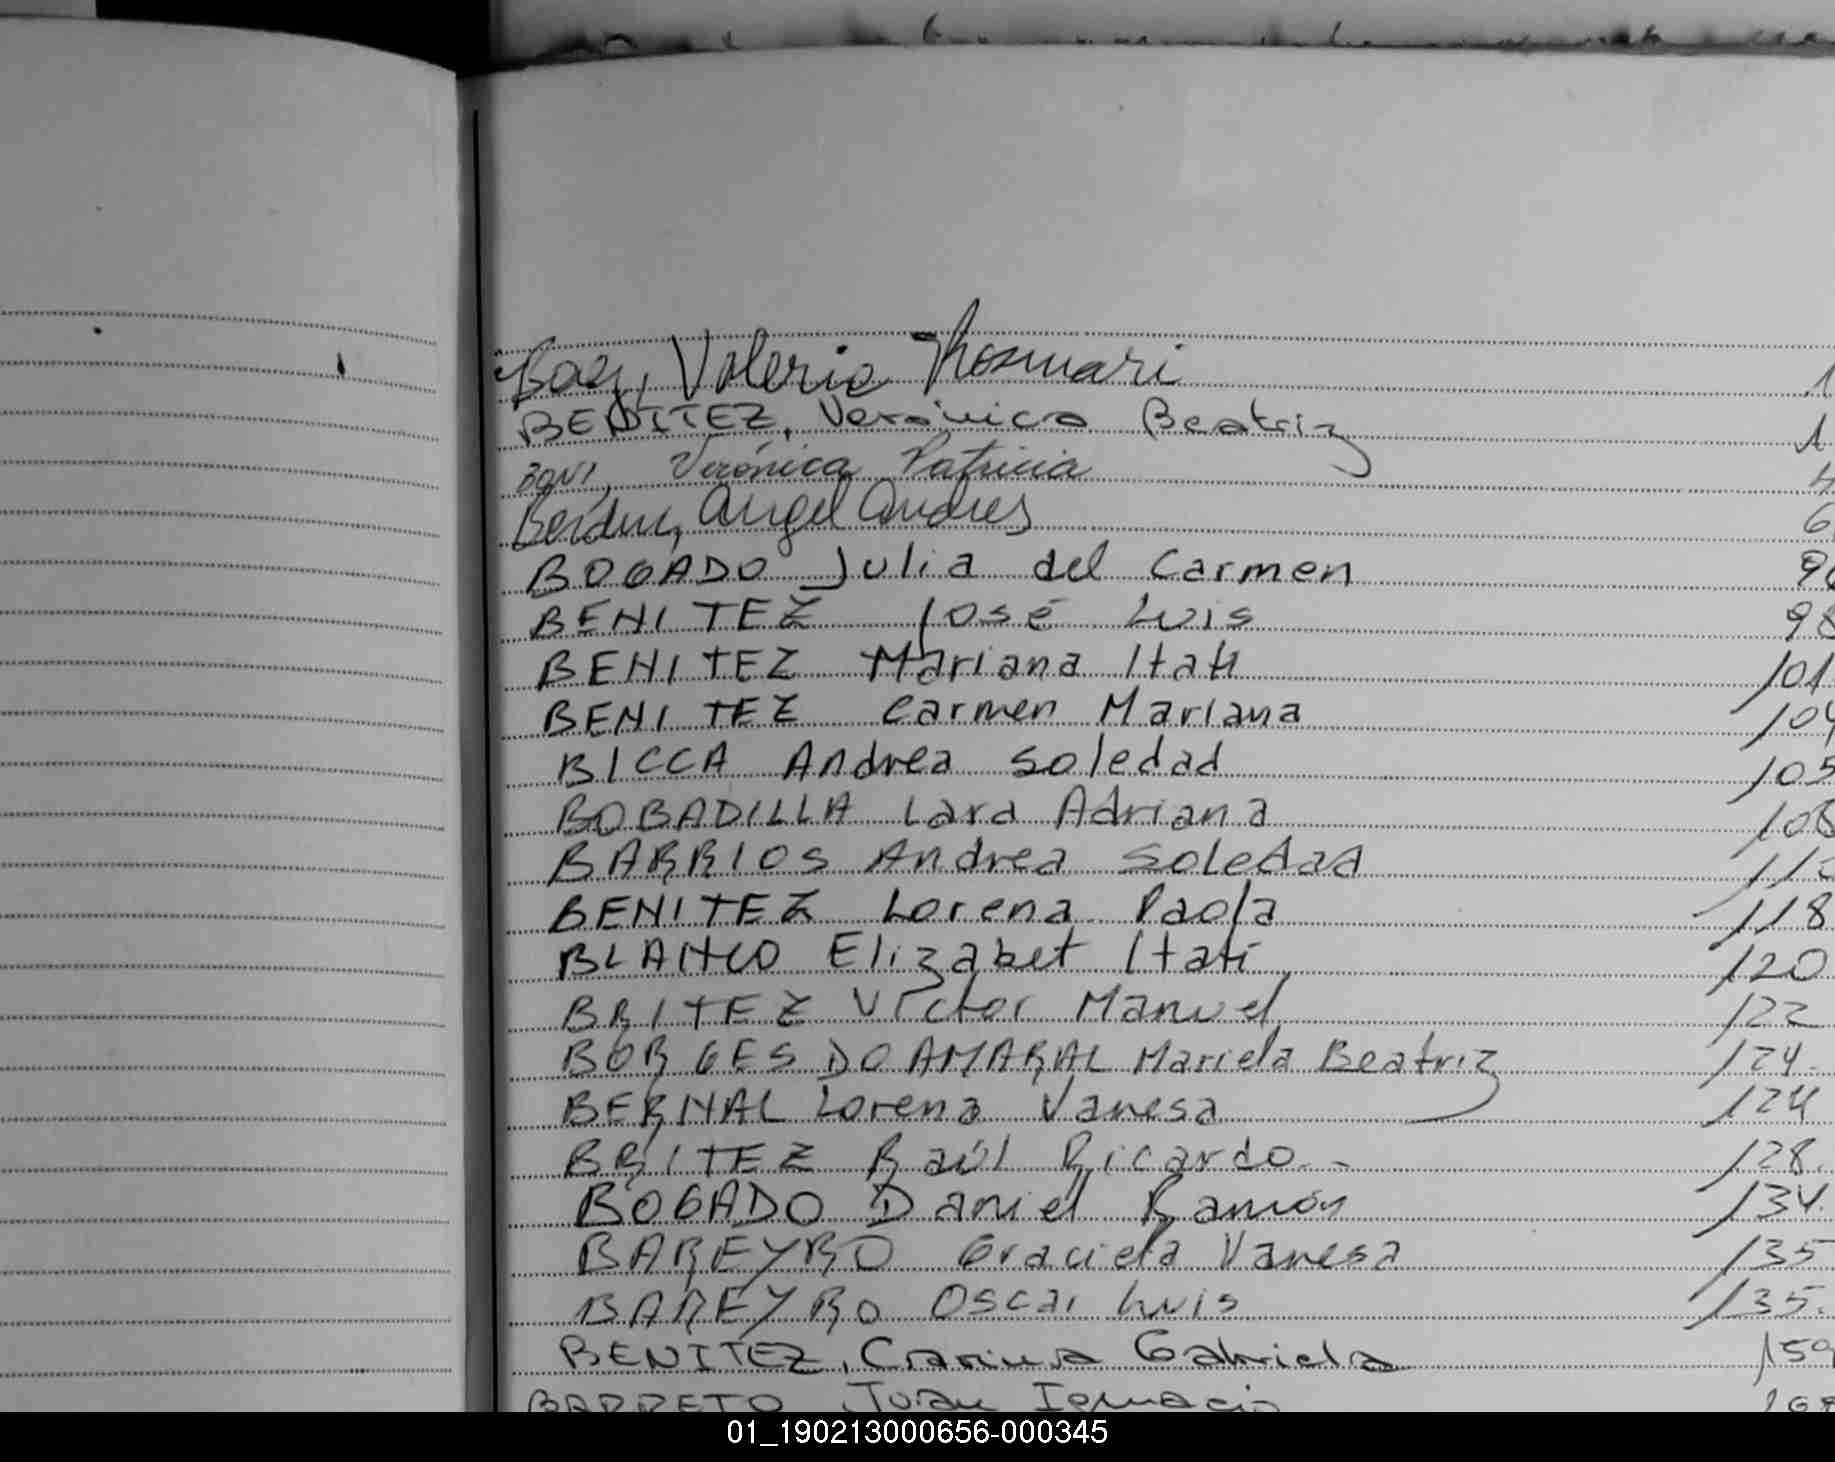 Baez, Valeria Rosmari 1
BENITEZ, Verónica Beatriz 1
BONI, Verónica Patricia 4
Berdun, Angel Andres 6
BOGADO Julia del Carmen
BENITEZ José Luis 98
BENITEZ Mariana Itatí 101
BENITEZ Carmen Mariana 104
BICCA Andrea Soledad 105
BOBADILLA Lara Adriana 108
BARRIOS Andrea Soledad
BENITEZ Lorena Paola 118
BLANCO Elizabet Itatí 120
BRITEZ Victor Manuel 122
BORGES DO AMARAL Mariela Beatriz 124.
BERNAL Lorena Vanesa 124
BRITEZ Raúl Ricardo.- 128.
BOGADO Daniel Ramón 134.
BAREYRO Graciela Vanesa 135
BAREYRO Oscar Luis 135.
BENITEZ, Carina Gabriela 159
BARRETO, Juan Ignacio
01_190213000656-000345